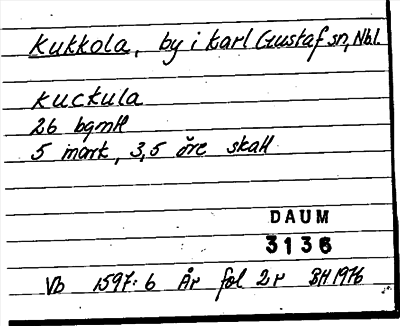 Kukkola, by i Karl Gustaf sn, Nbl.
Kuckula
26 bgmtl
5 mark, 3,5 öre skatt
DAUM
3136
Vb 1597:6 År fol 2r BH 1976